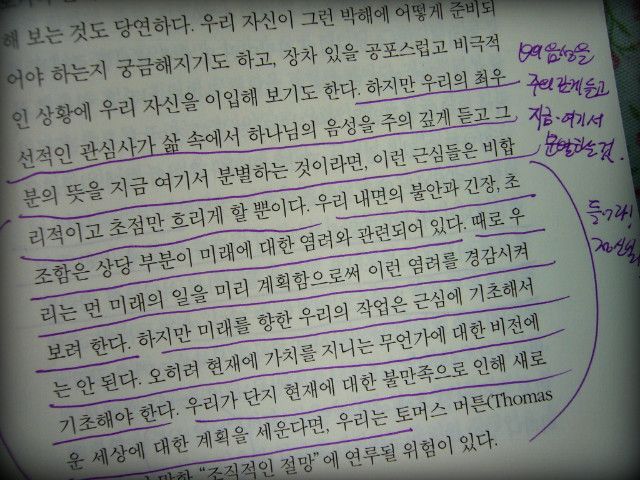 해 보는 것도 당연하다. 우리 자신이 그런 박해에 어떻게 준비되
어야 하는지 궁금해지기도 하고, 장차 있을 공포스럽고 비극적
인 상황에 우리 자신을 이입해 보기도 한다. 하지만 우리의 최우
선적인 관심사가 삶 속에서 하나님의 음성을 주의 깊게 듣고 그
분의 뜻을 지금 여기서 분별하는 것이라면, 이런 근심들은 비합
리적이고 초점만 흐리게 할 뿐이다. 우리 내면의 불안과 긴장, 초
조함은 상당 부분이 미래에 대한 염려와 관련되어 있다. 때로 우
리는 먼 미래의 일을 미리 계획함으로써 이런 염려를 경감시켜
보려 한다. 하지만 미래를 향한 우리의 작업은 근심에 기초해서
는 안 된다. 오히려 현재에 가치를 지니는 무언가에 대한 비전에
기초해야 한다. 우리가 단지 현재에 대한 불만족으로 인해 새로
운 세상에 대한 계획을 세운다면, 우리는 토머스 머튼(Thomas
"조직적인 절망"에 연루될 위험이 있다.
음성을
주의 깊게 듣고
지금·여기서
들으라!